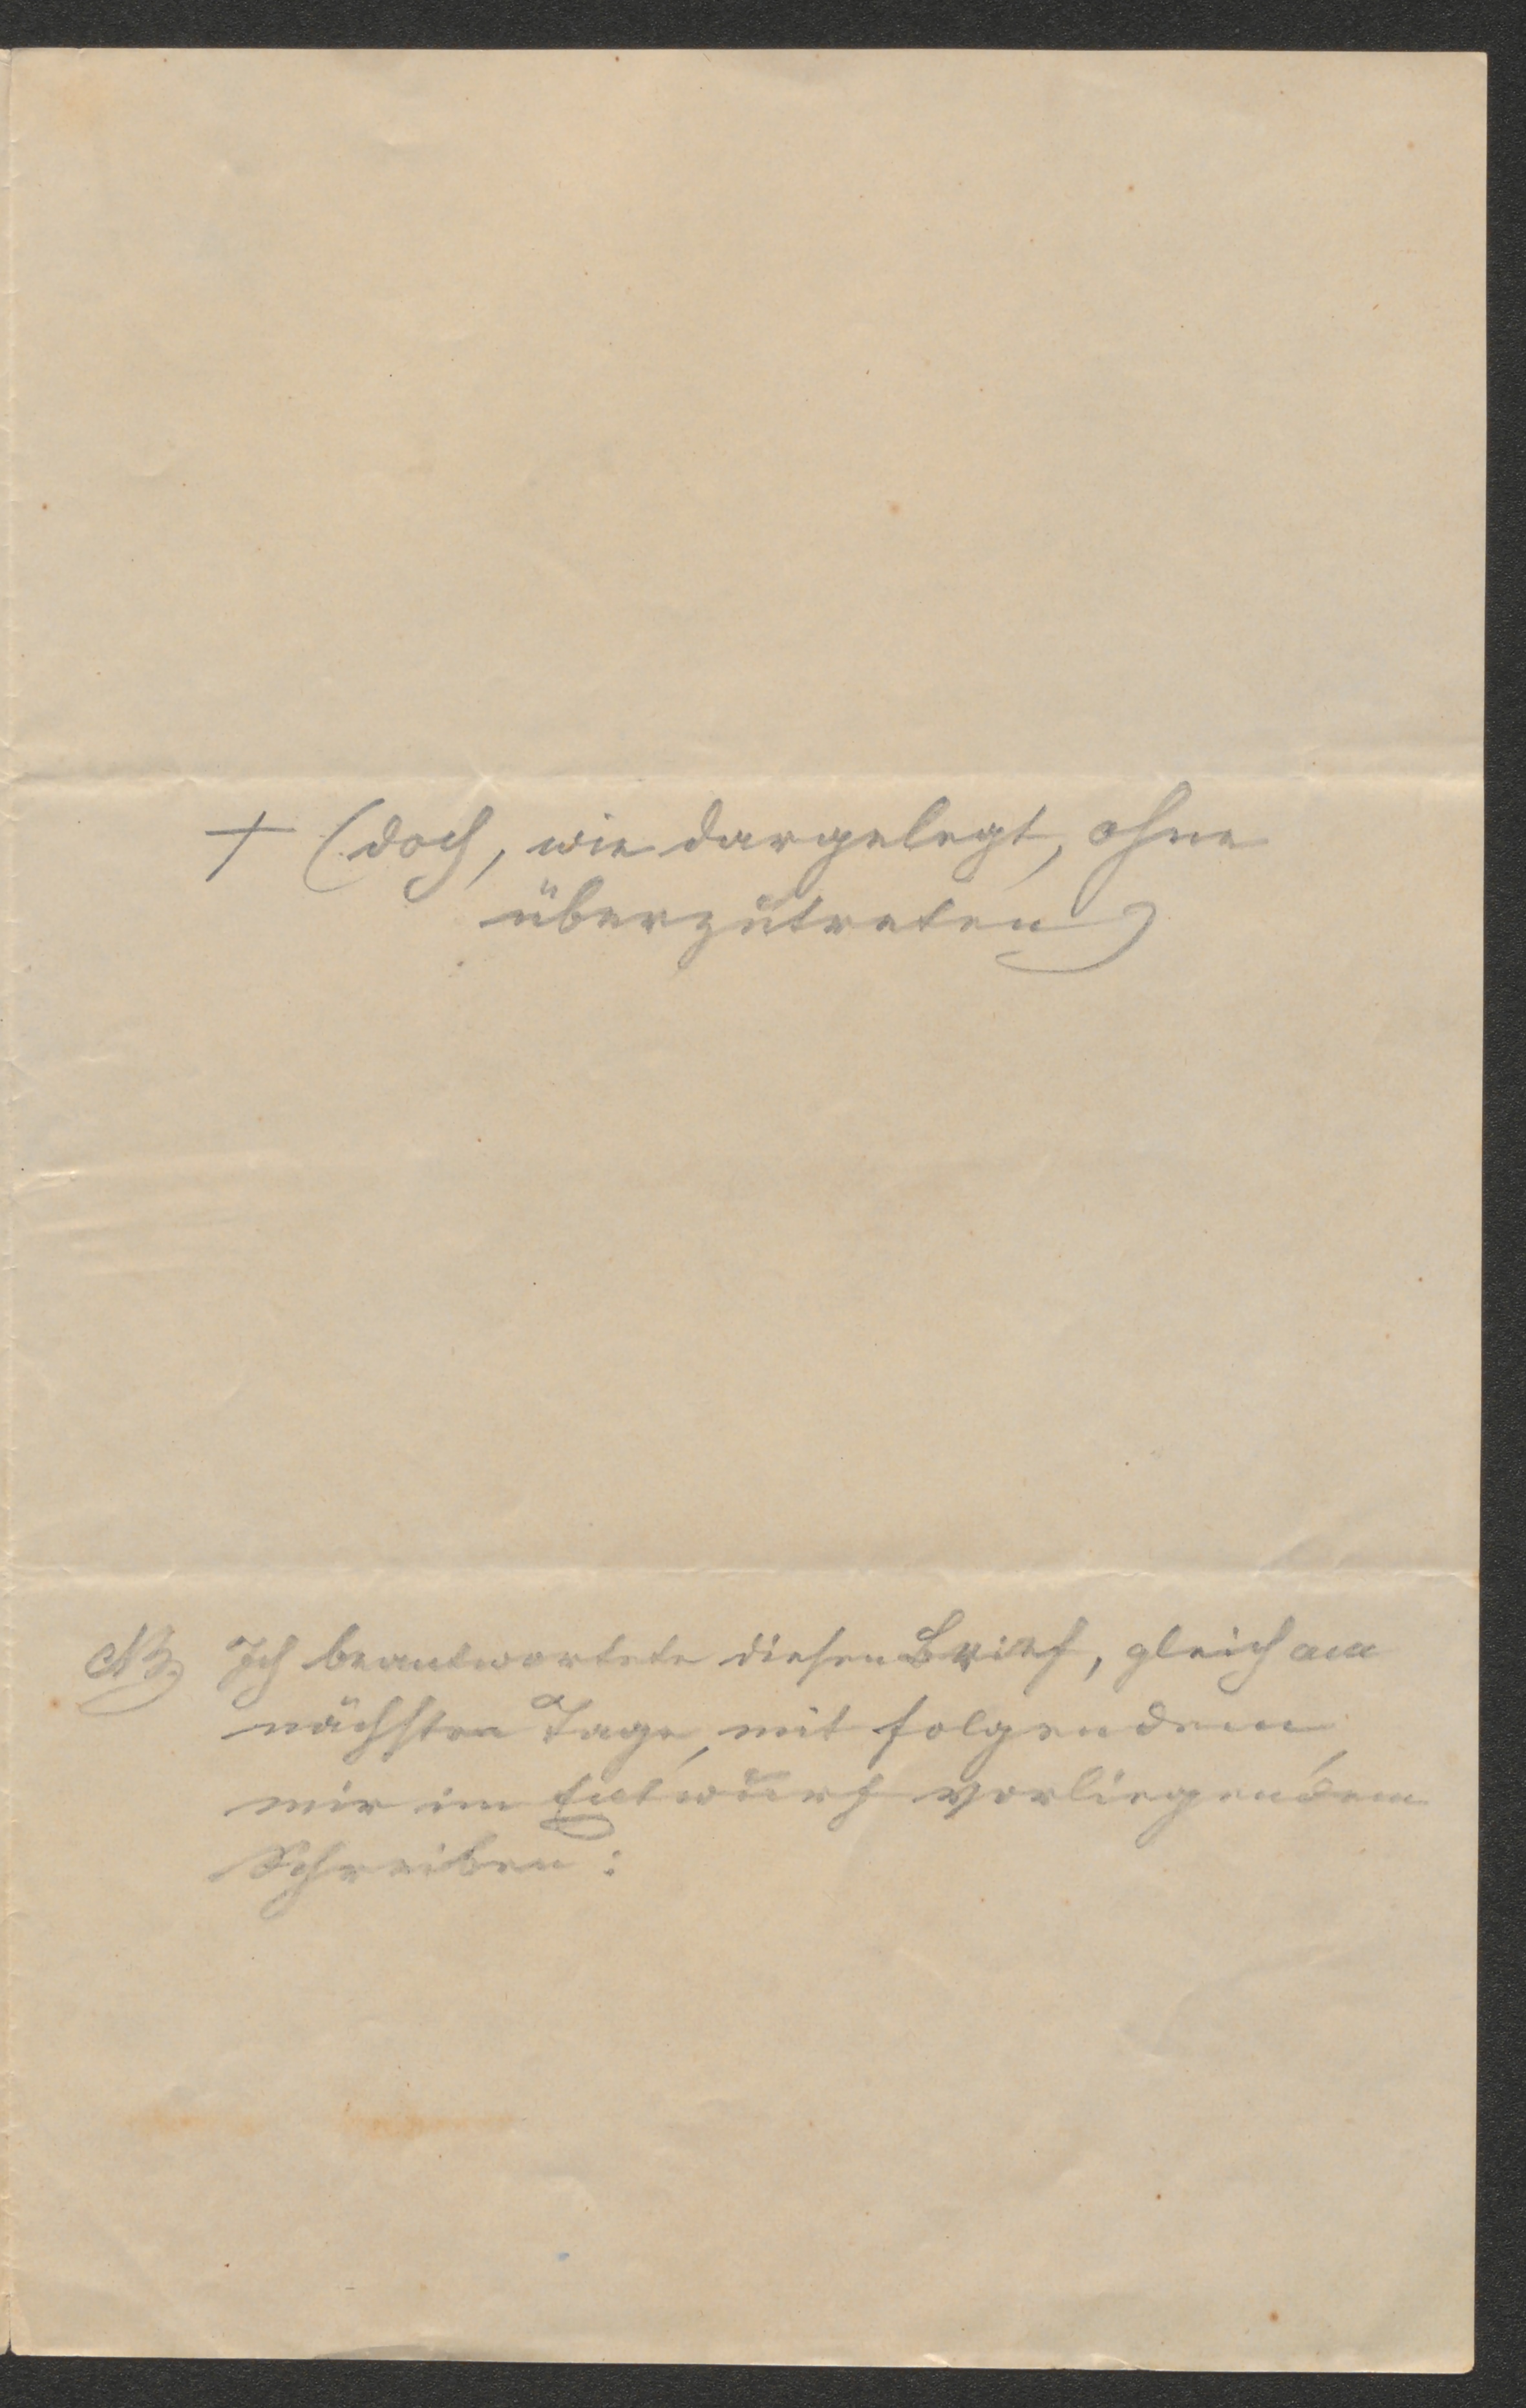 + (doch, wie dargelegt, ohne
überzutreten)
NB. Ich beantwortete diesen Brief, gleich am
nächsten Tage, mit folgendem,
mir im Entwurf vorliegendem
Schreiben: